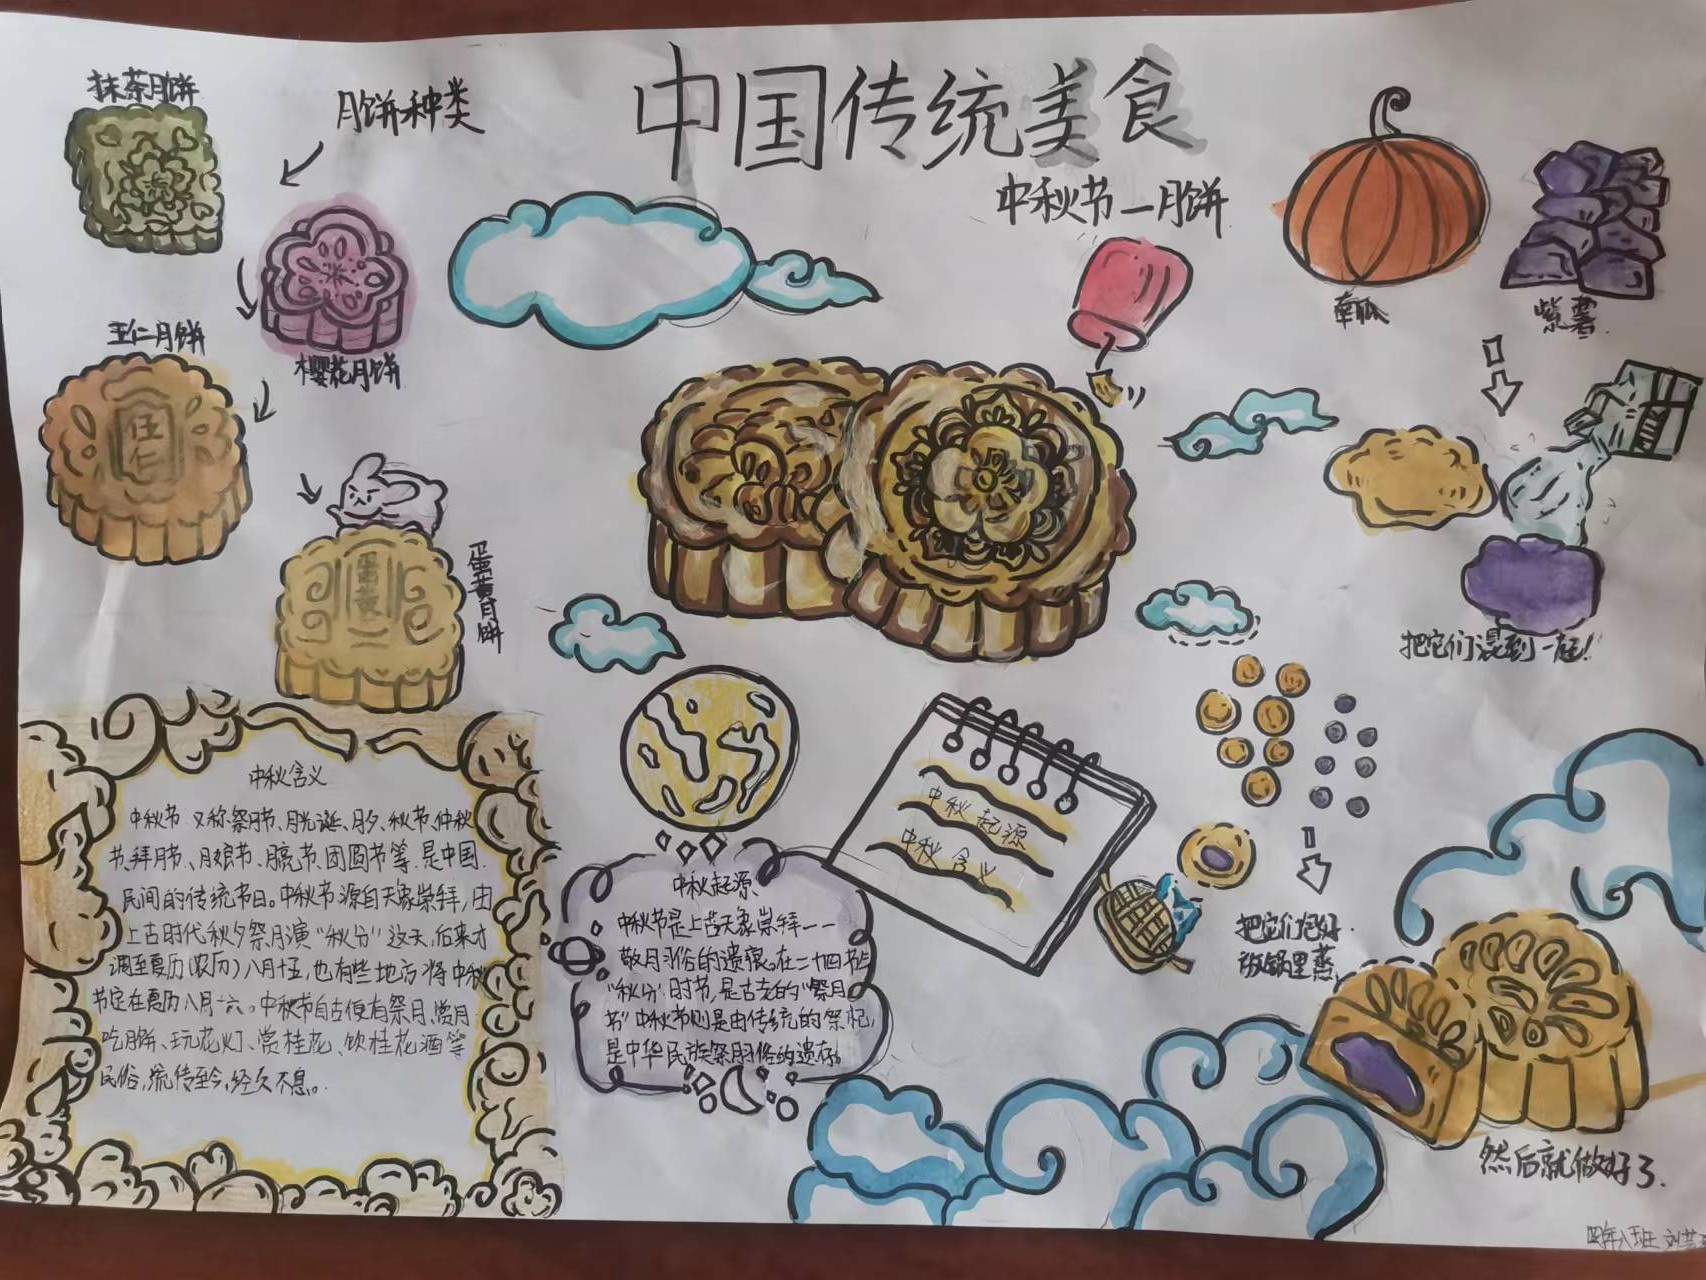 中国传统美食
中秋节一月饼
月饼种类
抹茶月饼
樱花月饼
五仁月饼
伍仁
蛋黄
蛋黄月饼
南瓜
紫薯
把它们混到一起!
把它们包好
放锅里蒸
然后就做好了.
中秋起源
中秋含义
中秋含义
中秋节又称祭月节、月光诞、月夕、秋节、仲秋
节、拜月节、月娘节、月亮节、团圆节等,是中国
民间的传统节日。中秋节源自天象崇拜,由
上古时代秋夕祭月演“秋分”这天,后来才
调至夏历(农历)八月十五,也有些地方将中秋
节定在夏历八月十六。中秋节自古便有祭月、赏月
吃月饼、玩花灯、赏桂花、饮桂花酒等
民俗,流传至今,经久不息。
中秋起源
中秋节是上古天象崇拜一一
敬月习俗的遗痕。在二十四节气
“秋分”时节,是古老的“祭月
节”中秋节则是由传统的祭祀,
是中华民族祭月习俗的遗存。
四年八班 刘芸